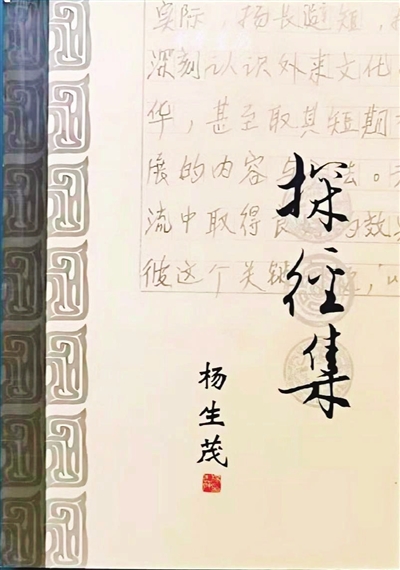 实际，扬长避短，
深刻认识外来文化
华，甚至取其短期
展的内容与
流中取得良
彼这个关键
探径集
杨生茂